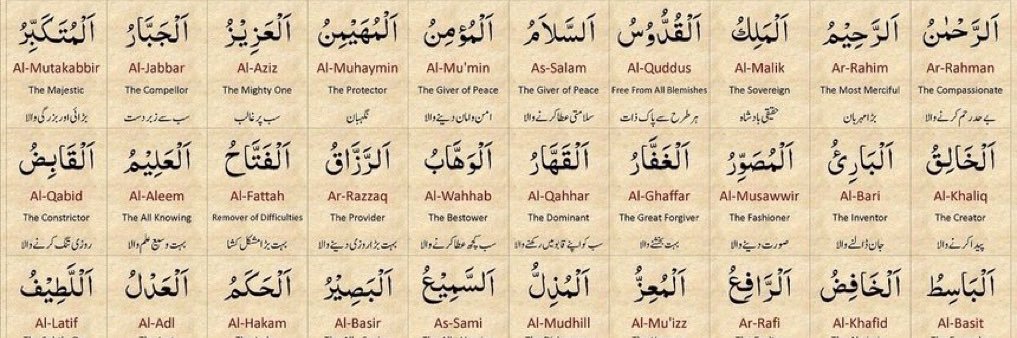 اَلرَّحْمٰنُ
Ar-Rahman
The Compassionate
بے حد رحم کرنے والا
اَلرَّحِيْمُ
Ar-Rahim
The Most Merciful
بڑا مہربان
اَلْمَلِكُ
Al-Malik
The Sovereign
حقیقی بادشاہ
اَلْقُدُّوْسُ
Al-Quddus
Free From All Blemishes
ہر طرح سے پاک ذات
اَلسَّلَامُ
As-Salam
The Giver of Peace
سلامتی عطا کرنے والا
اَلْمُؤْمِنُ
Al-Mu'min
The Giver of Peace
امن و امان دینے والا
اَلْمُهَيْمِنُ
Al-Muhaymin
The Protector
نگہبان
اَلْعَزِيْزُ
Al-Aziz
The Mighty One
سب پر غالب
اَلْجَبَّارُ
Al-Jabbar
The Compellor
سب سے زبردست
اَلْمُتَكَبِّرُ
Al-Mutakabbir
The Majestic
بڑائی اور بزرگی والا
اَلْخَالِقُ
Al-Khaliq
The Creator
پیدا کرنے والا
اَلْبَارِئُ
Al-Bari
The Inventor
جان ڈالنے والا
اَلْمُصَوِّرُ
Al-Musawwir
The Fashioner
صورت دینے والا
اَلْغَفَّارُ
Al-Ghaffar
The Great Forgiver
بہت بخشنے والا
اَلْقَهَّارُ
Al-Qahhar
The Dominant
سب کو اپنے قابو میں رکھنے والا
اَلْوَهَّابُ
Al-Wahhab
The Bestower
سب کچھ عطا کرنے والا
اَلرَّزَّاقُ
Ar-Razzaq
The Provider
بہت بڑا روزی دینے والا
اَلْفَتَّاحُ
Al-Fattah
Remover of Difficulties
بہت بڑا مشکل کشا
اَلْعَلِيْمُ
Al-Aleem
The All Knowing
بہت وسیع علم والا
اَلْقَابِضُ
Al-Qabid
The Constrictor
روزی تنگ کرنے والا
اَلْبَاسِطُ
Al-Basit
اَلْخَافِضُ
Al-Khafid
اَلرَّافِعُ
Ar-Rafi
اَلْمُعِزُّ
Al-Mu'izz
اَلْمُذِلُّ
Al-Mudhill
اَلسَّمِيْعُ
As-Sami
اَلْبَصِيْرُ
Al-Basir
اَلْحَكَمُ
Al-Hakam
اَلْعَدْلُ
Al-Adl
اَللَّطِيْفُ
Al-Latif